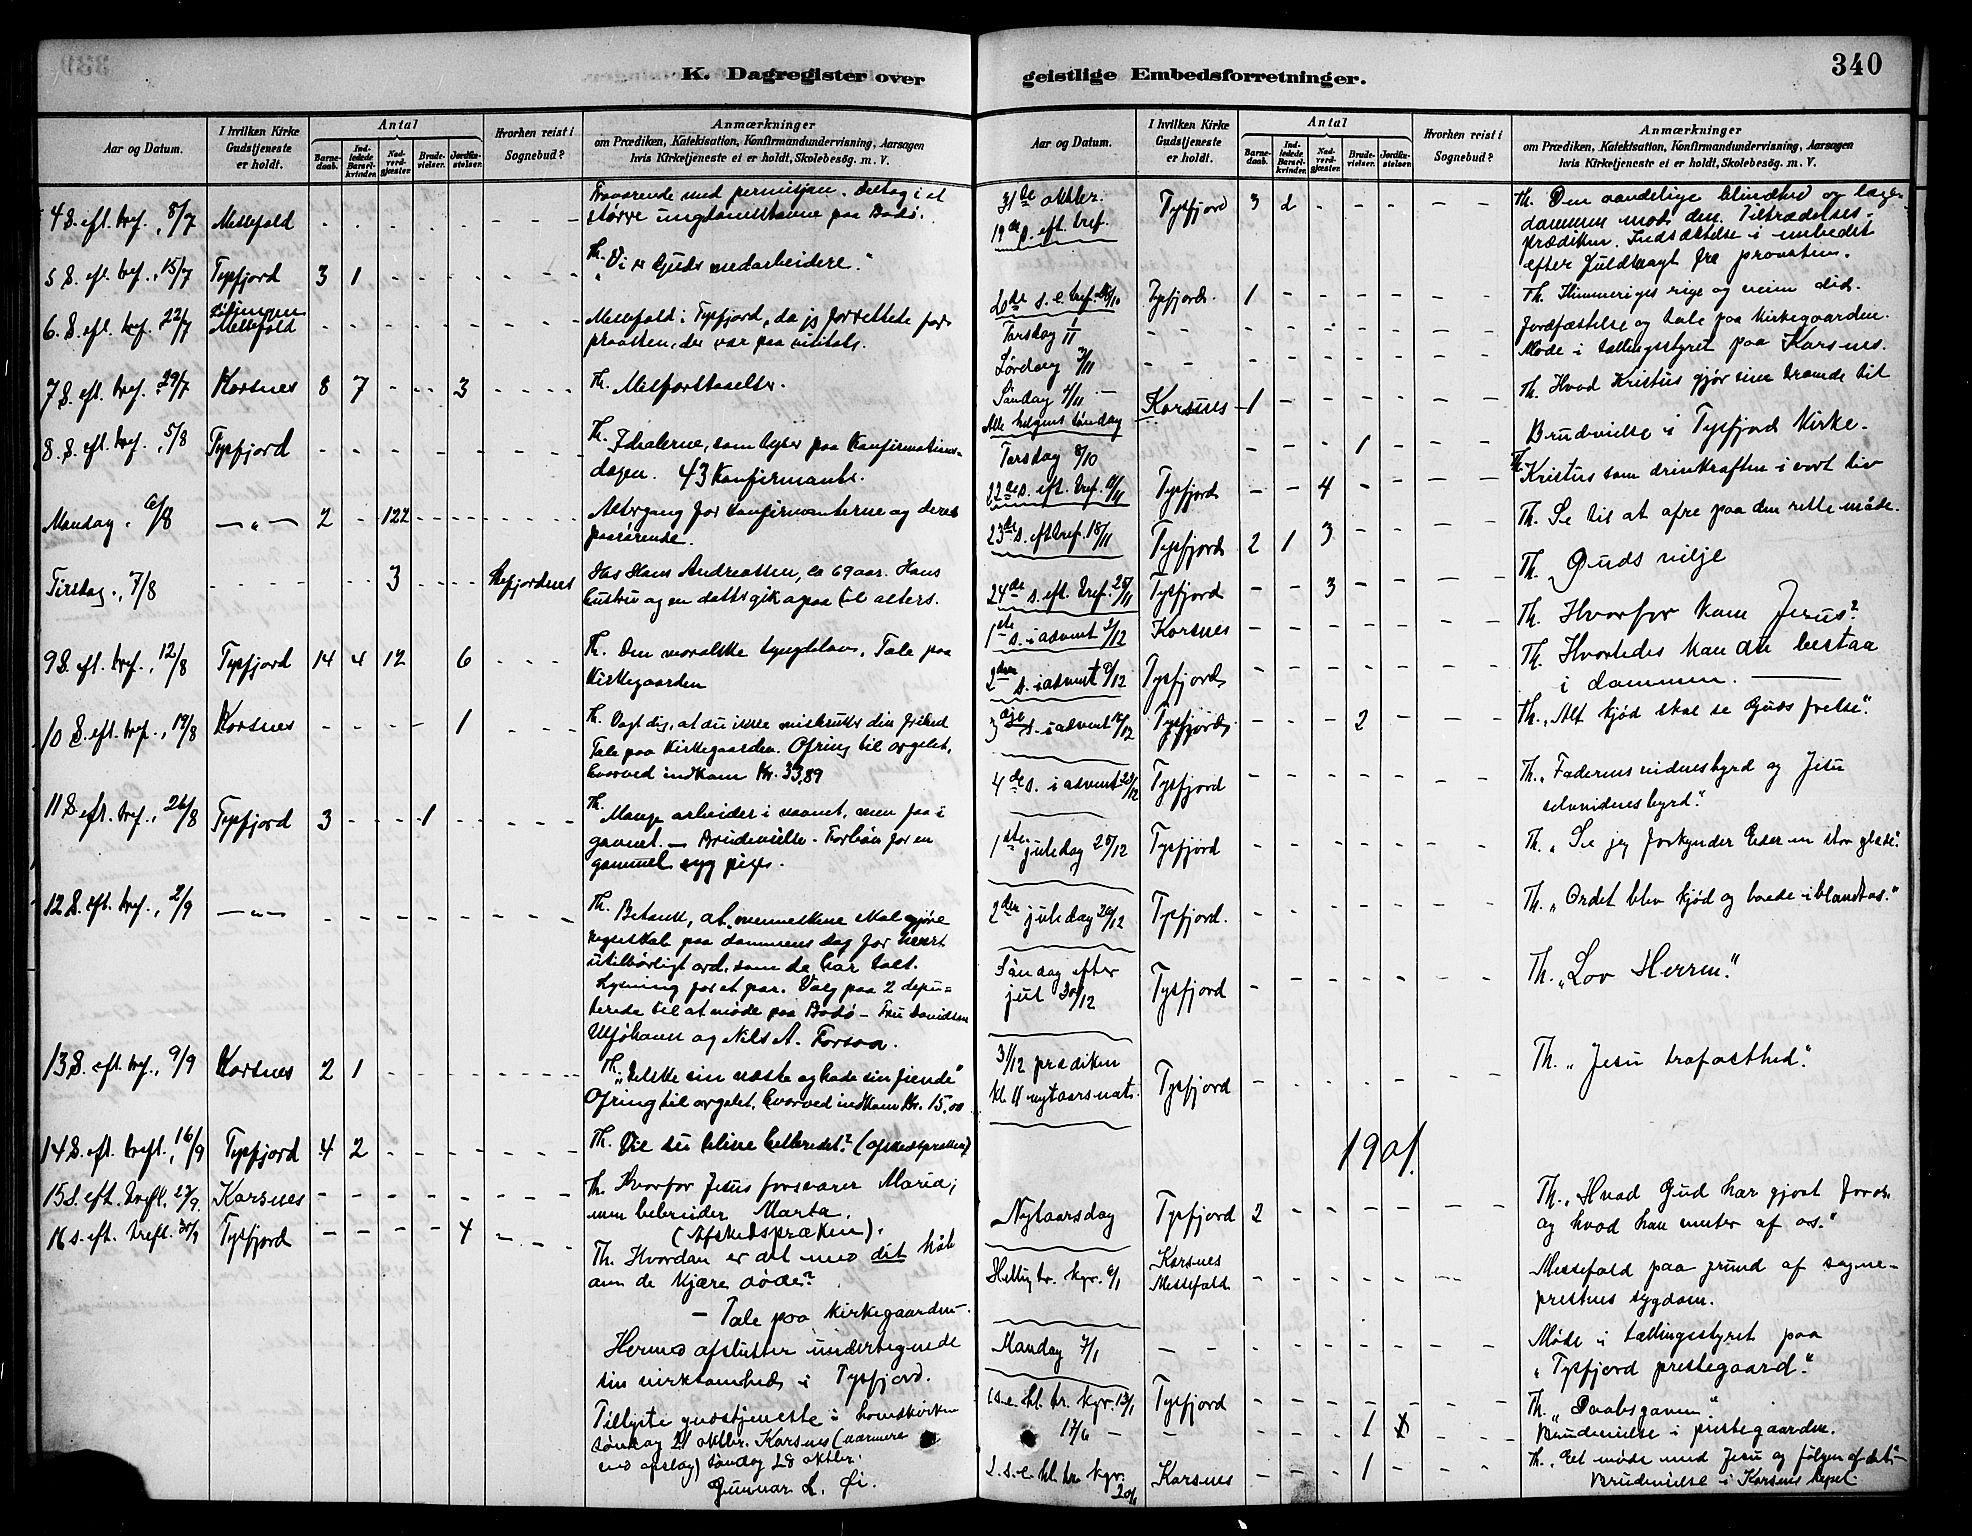 K. Dagregister over
geistlige Embedsforretninger.
340
Aar og Datum.
I hvilken Kirke
Gudstjeneste
er holdt.
Antal
Barne-
daab.
Ind-
ledede
Barsel-
kvinder.
Nad-
verd-
gjester.
Brude-
vielser.
Jordfæ-
stelser.
Hvorhen reist i
Sognebud?
Anmærkninger
om Prædiken, Katekisation, Konfirmandundervisning, Aarsagen
hvis Kirketjeneste ei er holdt, Skolebesøg. m. V.
4 S. eft. tref. 8/7 Messefald - - - - - - - - Fraværende med permisjon. Deltog i et
større ungdomsstevne paa Bodø.
5 S. eft. tref., 15/7 Tysfjord 3 1 - - - - - Th. "Vi er Guds medarbeidere."
6. S. eft. tref. 22/7 Lødingen
Messefald - - - - - Messefald i Tysfjord, da jeg forrettede for
provsten, der var paa visitats.
7 S. eft. tref. 29/7 Korsnes 8 7 - - 3 - - - Th. Misforstaaelser.
8 S. eft. tref. 5/8 Tysfjord - - - - - Th. Idealerne, som lyser paa Konfirmations-
dagen. 43 Konfirmanter.
Mandag, 6/8 — " — 2 - 122 - - - Altergang for konfirmanterne og deres
paarørende.
Tirsdag, 7/8 - - - 3 - - Hos Hans Andreassen, ca 69 aar. Hans
hustru og en datter gik ogsaa til alters.
9 S. eft. tref., 12/8 Tysfjord 14 4 12 - 6 - - - Th. Den moralske tyngdelov. Tale paa
Kirkegaarden
10 S. eft. tref., 19/8 Korsnes - - - - 1 - - - Th. Vogt dig, at du ikke misbruker din frihed
Tale paa Kirkegaarden. Ofring til orgelet,
hvorved indkom Kr. 33,89
11 S. eft. tref., 26/8 Tysfjord 3 - - 1 - - - - Th. Mange arbeider i navnet, men faa i
gavnet. — Brudevielse. Forbøn for en
gammel syg pige.
12 S. eft. tref., 2/9 — " — - - - - - - - - Th. Betænk, at menneskene skal gjøre
regnskab paa dommens dag for hvert
utilbørligt ord, som de har talt.
Lysning for et par. Valg paa 2 depu-
terede til at møde paa Bodø — Fru Davidsen
og Nils A. Forsaa.
13 S. eft. tref., 9/9 Korsnes 2 1 - - - - - - Th. "Elske sin næste og hade sin fiende"
Ofring til orgelet, hvorved indkom Kr. 15.00
14 S. eft. treft., 16/9 Tysfjord 4 2 - - - - - - Th. Vil du blive helbredet? (Afskedspræken)
15 S. eft. treft. 23/9. Korsnes - - - - - - - - Th. Hvorfor Jesus forsvarer Maria,
men bebreider Marta.
(Afskedspræken).
16 s. eft. treft. 30/9 Tysfjord - - - - 4 - - - Th. Hvordan er det med dit håb
om de kjære døde?
— Tale paa kirkegaarden.
Hermed afslutter undertegnede
sin virksomhed i Tysfjord.
Tillyste gudstjeneste i hovedkirken
søndag 21 oktbr. Korsnes (nærmere
ved opslag) søndag 28 oktbr.
Gunnar L. Øi.
Aar og Datum.
I hvilken Kirke
Gudstjeneste
er holdt.
Antal
Barne-
daab.
Ind-
ledede
Barsel-
kvinder.
Nad-
verd-
gjester.
Brude-
vielser.
Jordfæ-
stelser.
Hvorhen reist i
Sognebud?
Anmærkninger
om Prædiken, Katekisation, Konfirmandundervisning, Aarsagen
hvis Kirketjeneste ei er holdt, Skolebesøg. m. V.
19de s. eft. tref. Tysfjord 3 2 - - - - - Th. Den aandelige blindhed og læge-
dommen mod den. Tiltrædelses-
prædiken. Indsættelse i embedet
efter fuldmagt fra provsten.
20de s. e. tref. Tysfjord. 1 - - - - - - Th. Himmeriges rige og veien did.
Torsdag 1/11 - - - - - - - Jordfæstelse og tale paa kirkegaarden.
Lørdag 3/11 - - - - - - - Møde i tællingsstyret paa Korsnes.
Søndag 4/11 —
Alle helgens søndag Korsnes 1 - - - - - - Th. Hvad Kristus gjør sine troende til
Torsdag 8/10 - - - 1 - - - Brudevielse i Tysfjord Kirke.
22de s. eft. tref. 11/11 Tysfjord - - 4 - - - - Th. Kristus som drivkraften i vort liv
23de s. eft tref. 18/11 Tysfjord 2 1 3 - - - - Th. Se til at ofre paa den rette måde.
24de s. eft. tref. 25/11 Tysfjord - - 3 - - - - Th. Guds vilje
1ste s. i advent 2/12 Korsnes - - - - - - - Th. Hvorfor kom Jesus?
2den s. i advent 9/12 Tysfjord - - - - - - - Th. Hvorledes kan du bestaa
i dommen. —
3dje s. i advent 16/12 Tysfjord. - - - 2 - - - Th. "Alt kjød skal se Guds frelse".
4de s. i advent 23/12 Tysfjord - - - - - - - Th. "Faderens vidnesbyrd og Jesu
selvvidnesbyrd."
1ste juledag 25/12 Tysfjord - - - - - - - Th. "Se jeg forkynder Eder en stor glæde."
2den juledag 26/12 Tysfjord. - - - - - - - Th. "Ordet blev kjød og boede iblandt os."
Søndag efter
jul 30/12 Tysfjord - - - - - - - Th. "Lov Herren."
31/12 prædiken
kl. 11 nytaarsnat. Tysfjord - - - - - - - Th. "Jesu trofasthed."
1901.
Nytaarsdag Tysfjord 2 - - - - - - Th. "Hvad Gud har gjort for os
og hvad han venter af os."
Hellig tr. kgr. 6/1 Korsnes
Messefald - - - - - - - Messefald paa grund af sogne-
prestens sygdom.
Mandag 7/1 - - - - - - - Møde i tællingsstyret paa
"Tysfjord prestegaard."
1 s. e. hl. tr. kgr. 13/1 Tysfjord - - - - - - - Th. "Daabsgaven"
— - - - 1 - - - Brudevielse i prestegaarden.
2. s. e. hl. tr. kgr. Korsnes - - - 1 - - - Th. "Et møde med Jesu og følgen af det"
Brudevielse i Korsnes kapel.